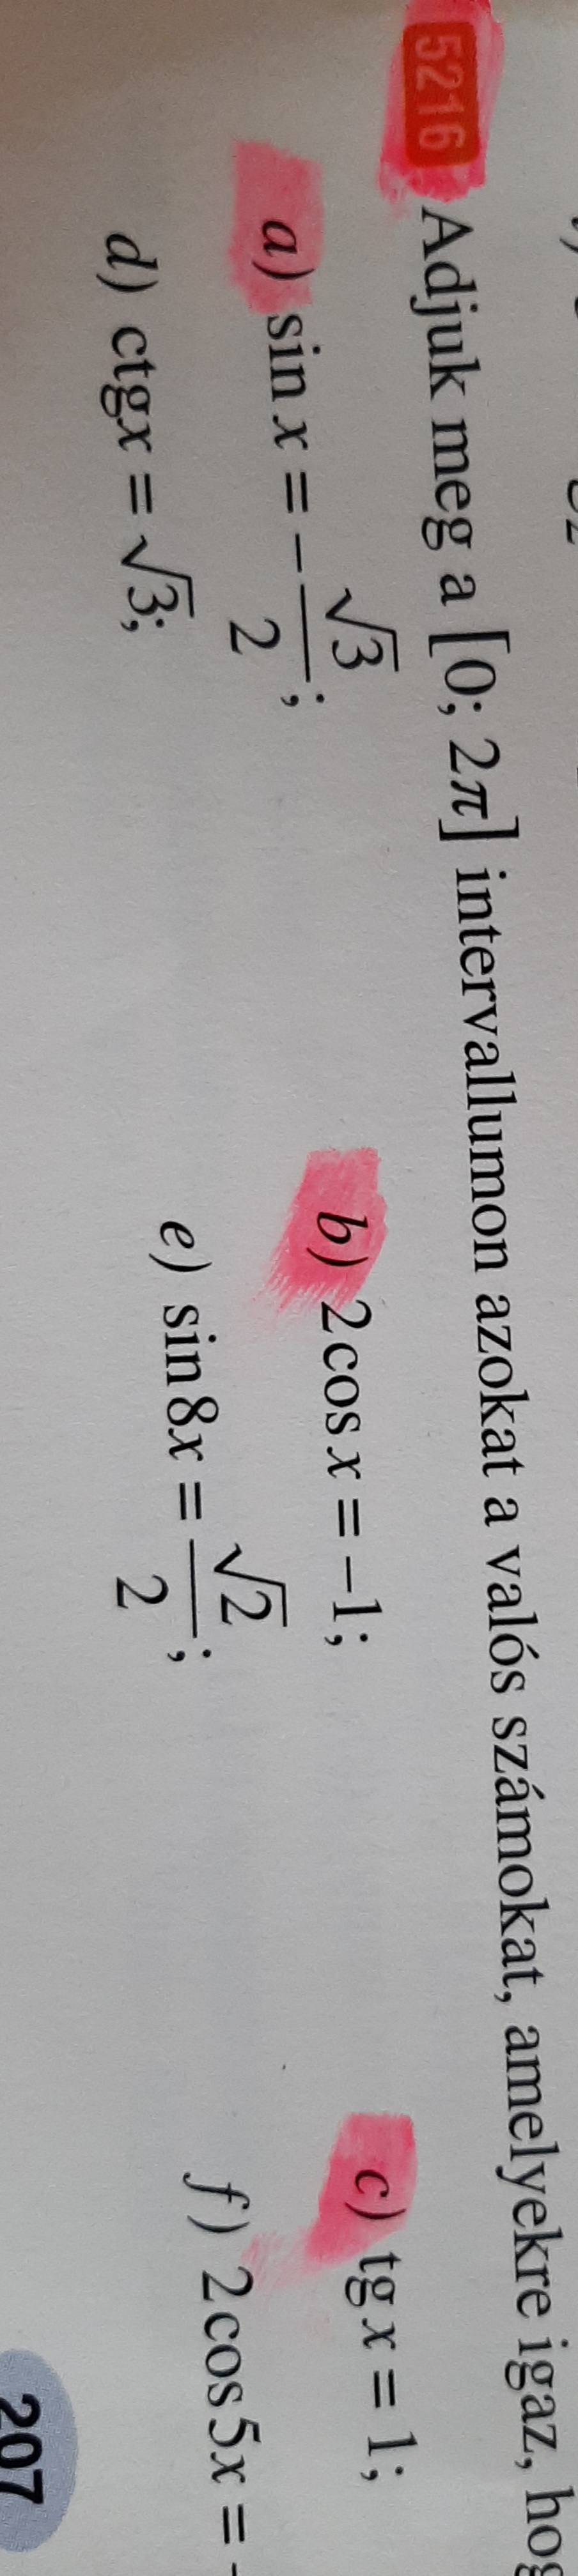 5216 Adjuk meg a [0; 2π] intervallumon azokat a valós számokat, amelyekre igaz,
a) sin x = -√3/2; b) 2cos x = -1; c) tg x = 1;
d) ctgx = √3; e) sin8x = √2/2; f) 2cos5x = -
207